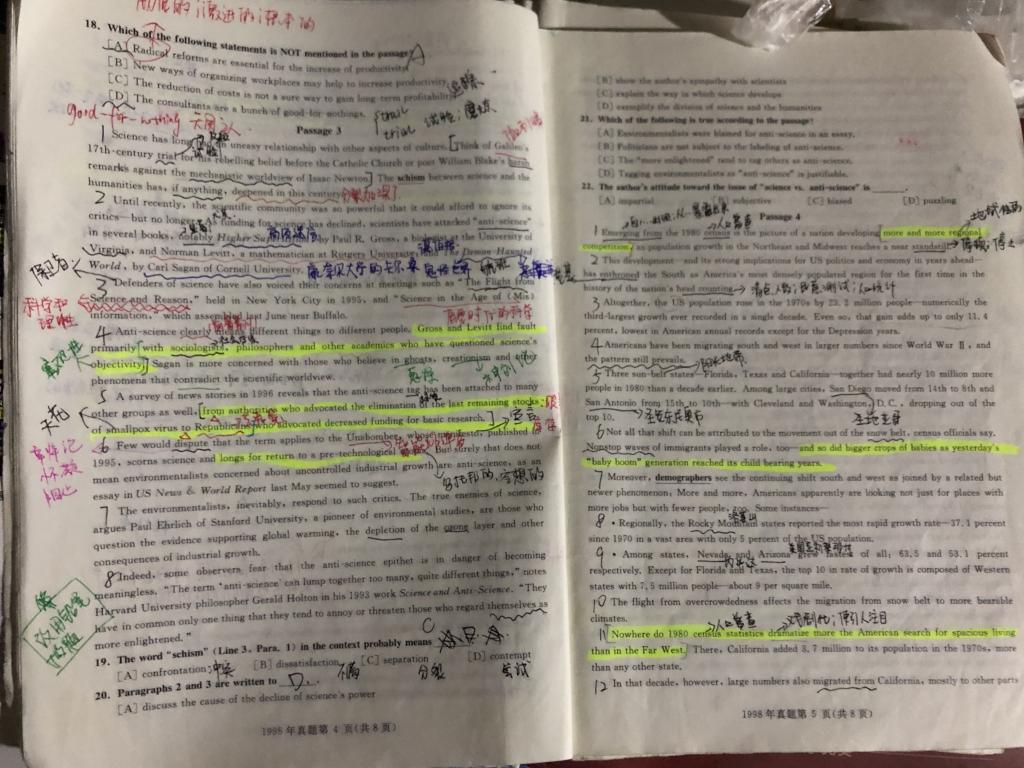 18. Which of the following statements is NOT mentioned in the passage? A
[A] Radical reforms are essential for the increase of productivity.
[B] New ways of organizing workplaces may help to increase productivity.
[C] The reduction of costs is not a sure way to gain long-term profitability.
[D] The consultants are a bunch of good-for-nothings.
good-for-nothing
trial
Passage 3
1 Science has long uneasy relationship with other aspects of culture. Think of Galileo's
17th-century trial for his rebelling belief before the Catholic Church or poet William Blake's harsh
remarks against the mechanistic worldview of Isaac Newton. The schism between science and the
humanities has, if anything, deepened in this century.
2 Until recently, the scientific community was so powerful that it could afford to ignore its
critics—but no longer. As funding for science has declined, scientists have attacked "anti-science"
in several books, notably Higher by Paul R. Gross, a biologist at the University of
Virginia, and Norman Levitt, a mathematician at Rutgers University
World, by Carl Sagan of Cornell University.
3 Defenders of science have also voiced their concerns at meetings such as "The Flight from
Science and Reason," held in New York City in 1995, and "Science in the Age of (Mis)
information," which assembled last June near Buffalo.
科学和
理性
4 Anti-science clearly means different things to different people. Gross and Levitt find fault
primarily with sociologists, philosophers and other academics who have questioned science's
objectivity. Sagan is more concerned with those who believe in ghosts, creationism and other
客观性
phenomena that contradict the scientific worldview.
5 A survey of news stories in 1996 reveals that the anti-science tag has been attached to many
other groups as well, from authorities who advocated the elimination of the last remaining stocks
of smallpox virus to Republicans who advocated decreased funding for basic research.
宣言
6 Few would dispute that the term applies to the Unabomber, whose manifesto, published in
1995, scorns science and longs for return to a pre-technological But surely that does not
mean environmentalists concerned about uncontrolled industrial growth are anti-science, as an
essay in US News & World Report last May seemed to suggest.
7 The environmentalists, inevitably, respond to such critics. The true enemies of science,
argues Paul Ehrlich of Stanford University, a pioneer of environmental studies, are those who
question the evidence supporting global warming, the depletion of the ozone layer and other
consequences of industrial growth.
8 Indeed, some observers fear that the anti-science epithet is in danger of becoming
meaningless. "The term 'anti-science' can lump together too many, quite different things," notes
Harvard University philosopher Gerald Holton in his 1993 work Science and Anti-Science. "They
have in common only one thing that they tend to annoy or threaten those who regard themselves as
more enlightened."
19. The word "schism" (Line 3, Para. 1) in the context probably means C
[A] confrontation 冲突 [B] dissatisfaction 不满 [C] separation 分裂 [D] contempt
20. Paragraphs 2 and 3 are written to D.
[A] discuss the cause of the decline of science's power
1998 年真题第 4 页(共 8 页)
[B] show the author's sympathy with scientists
[C] explain the way in which science develops
[D] exemplify the division of science and the humanities
21. Which of the following is true according to the passage?
[A] Environmentalists were blamed for anti-science in an essay.
[B] Politicians are not subject to the labeling of anti-science.
[C] The "more enlightened" tend to tag others as anti-science.
[D] Tagging environmentalists as "anti-science" is justifiable.
22. The author's attitude toward the issue of "science vs. anti-science" is ______.
[A] impartial [B] subjective [C] biased [D] puzzling
Passage 4
1 Emerging from the 1980 census is the picture of a nation developing more and more regional
competition, as population growth in the Northeast and Midwest reaches a near standstill.
2 This development—and its strong implications for US politics and economy in years ahead—
has enthroned the South as America's most densely populated region for the first time in the
history of the nation's head counting.
3 Altogether, the US population rose in the 1970s by 23.2 million people—numerically the
third-largest growth ever recorded in a single decade. Even so, that gain adds up to only 11.4
percent, lowest in American annual records except for the Depression years.
4 Americans have been migrating south and west in larger numbers since World War Ⅱ, and
the pattern still prevails.
5 Three sun-belt states—Florida, Texas and California—together had nearly 10 million more
people in 1980 than a decade earlier. Among large cities, San Diego moved from 14th to 8th and
San Antonio from 15th to 10th—with Cleveland and Washington, D. C., dropping out of the
top 10.
6 Not all that shift can be attributed to the movement out of the snow belt, census officials say.
Nonstop waves of immigrants played a role, too—and so did bigger crops of babies as yesterday's
"baby boom" generation reached its child bearing years.
7 Moreover, demographers see the continuing shift south and west as joined by a related but
newer phenomenon: More and more, Americans apparently are looking not just for places with
more jobs but with fewer people, too. Some instances—
8 • Regionally, the Rocky Mountain states reported the most rapid growth rate—37.1 percent
since 1970 in a vast area with only 5 percent of the US population.
9 • Among states, Nevada and Arizona grew fastest of all: 63.5 and 53.1 percent
respectively. Except for Florida and Texas, the top 10 in rate of growth is composed of Western
states with 7.5 million people—about 9 per square mile.
10 The flight from overcrowdedness affects the migration from snow belt to more bearable
climates.
11 Nowhere do 1980 census statistics dramatize more the American search for spacious living
than in the Far West. There, California added 3.7 million to its population in the 1970s, more
than any other state.
12 In that decade, however, large numbers also migrated from California, mostly to other parts
1998 年真题第 5 页(共 8 页)